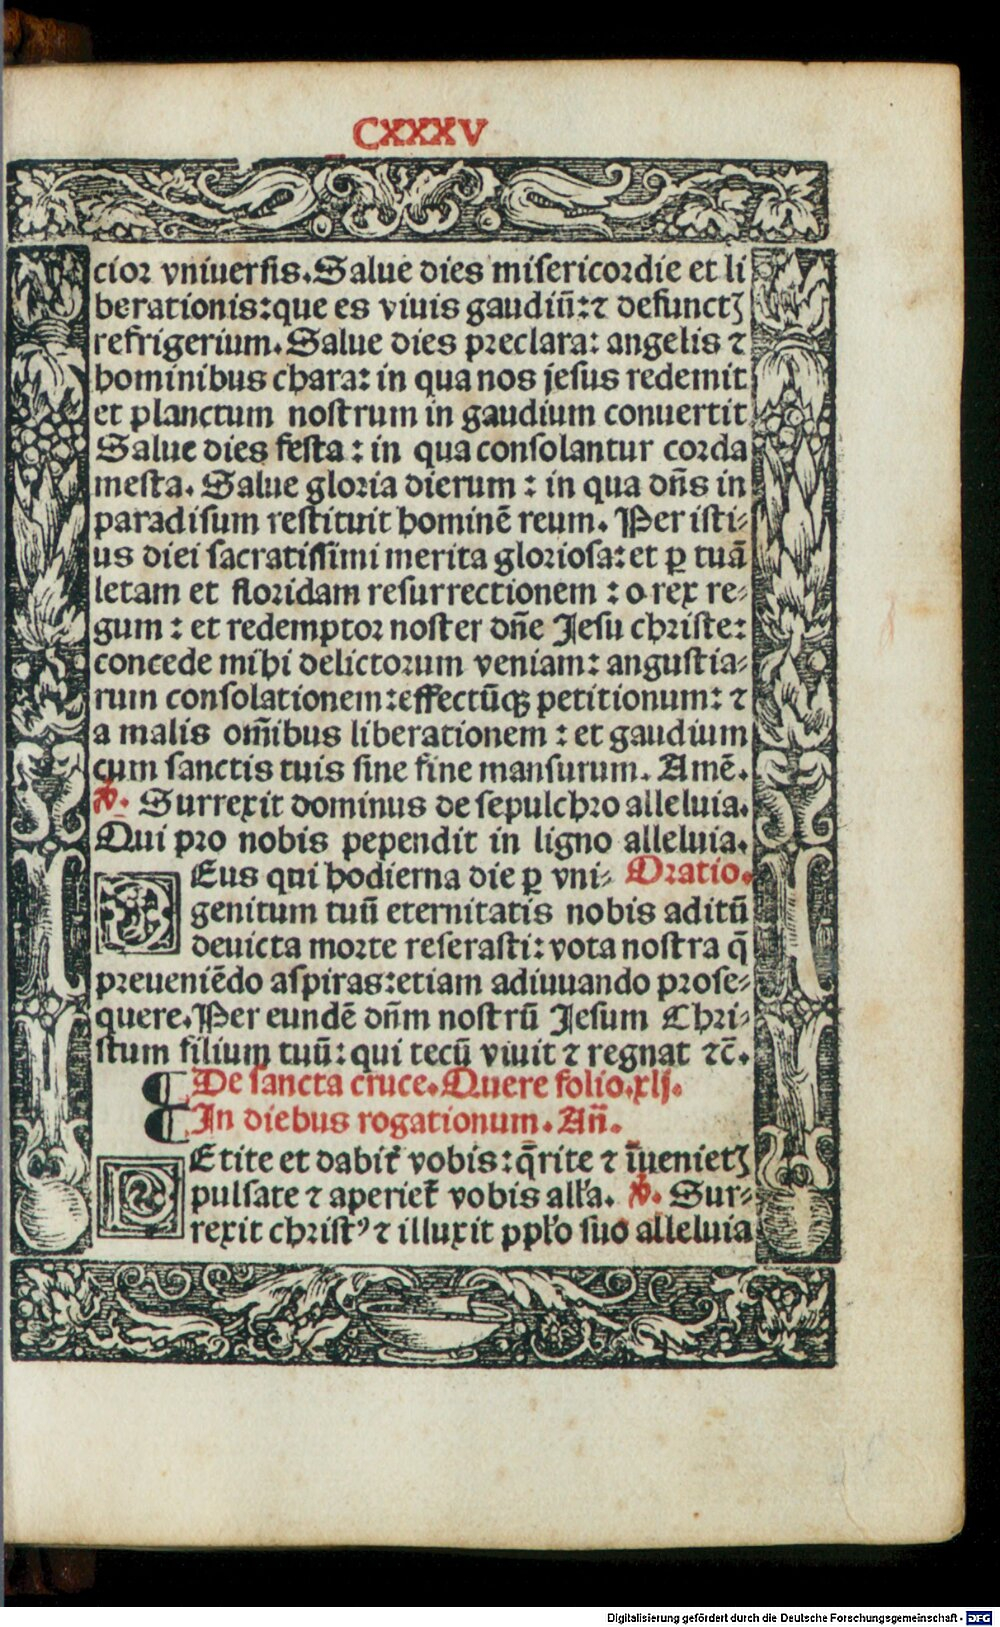 CXXXV
cior vniuersis. Salue dies misericordie et li
berationis: que es viuis gaudiū: ⁊ defunctꝫ
refrigerium. Salue dies preclara: angelis ⁊
hominibus chara: in qua nos jesus redemit
et planctum nostrum in gaudium conuertit
Salue dies festa: in qua consolantur corda
mesta. Salue gloria dierum: in qua dn̄s in
paradisum restituit hominē reum. Per isti⸗
us diei sacratissimi merita gloriosa: et ꝑ tuā
letam et floridam resurrectionem: o rex re⸗
gum: et redemptor noster dn̄e Jesu christe:
concede mihi delictorum veniam: angustia⸗
rum consolationem: effectūqꝫ petitionum: ⁊
a malis om̄ibus liberationem: et gaudium
cum sanctis tuis sine fine mansurum. Amē.
℣. Surrexit dominus de sepulchro alleluia.
Qui pro nobis pependit in ligno alleluia.
DEus qui hodierna die ꝑ vni⸗ Oratio.
genitum tuū eternitatis nobis aditū
deuicta morte reserasti: vota nostra q̄
preueniēdo aspiras: etiam adiuuando prose⸗
quere. Per eundē dn̄m nostrū Jesum Chri⸗
stum filium tuū: qui tecū viuit ⁊ regnat ⁊c̄.
¶ De sancta cruce. Quere folio. xlj.
¶ In diebus rogationum. An̄.
PEtite et dabit᷑ vobis: q̄rite ⁊ īuenietꝫ
pulsate ⁊ aperiet᷑ vobis alľa. ℣. Sur⸗
rexit christꝰ ⁊ illuxit ppľo suo alleluia
Digitalisierung gefördert durch die Deutsche Forschungsgemeinschaft - DFG